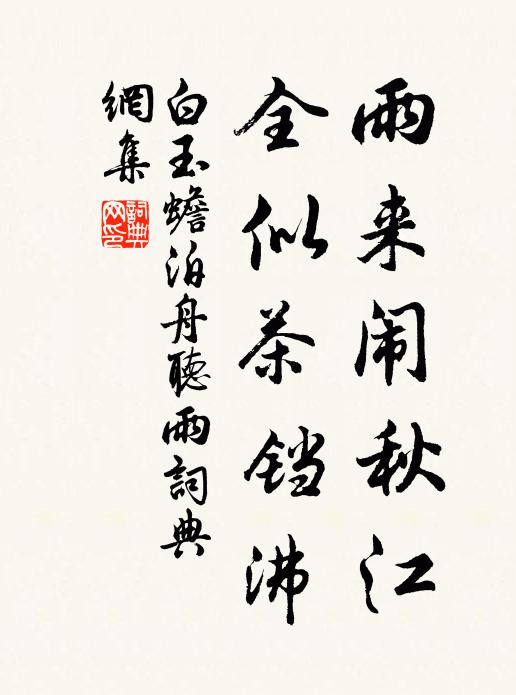 雨来闹秋江
全似茶铛沸
白玉蟾泊舟聽雨詞典
網集
詞典
网印